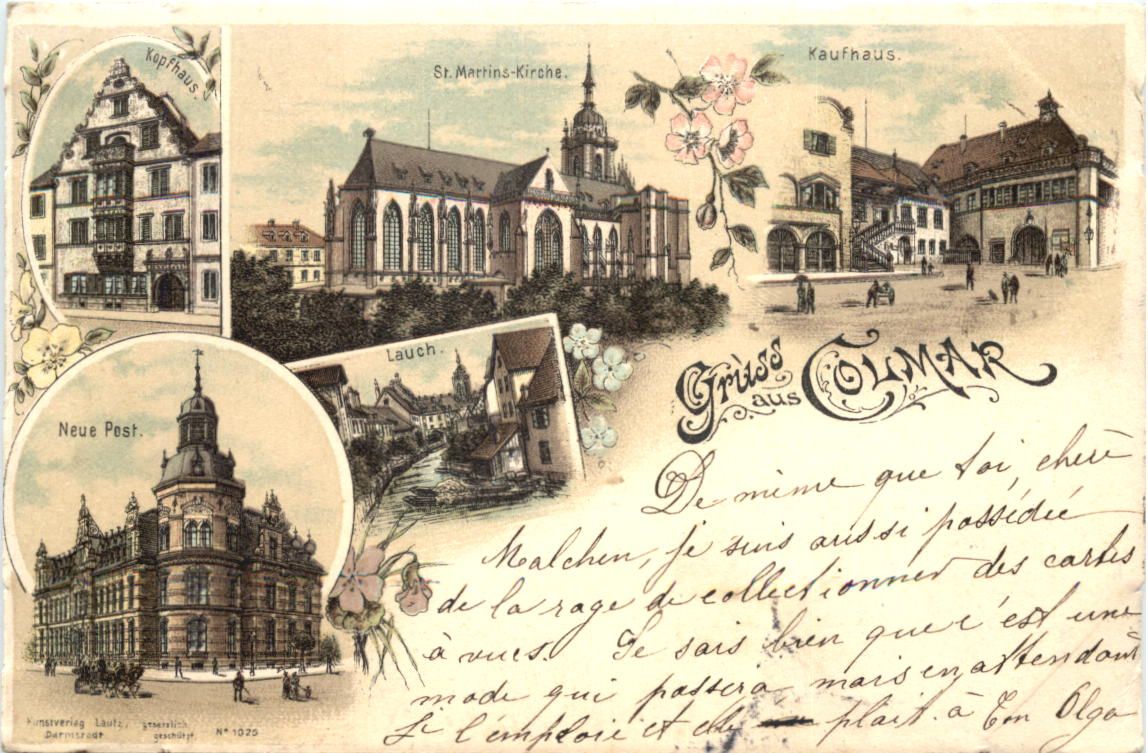 Kopfhaus.
St. Martins-Kirche.
Kaufhaus.
Lauch.
Neue Post.
Gruss
aus COLMAR
De même que toi, chère
Malchen, je suis aussi possédée
de la rage de collectionner des cartes
à vues. Je sais bien que c'est une
mode qui passera mais en attendant
je l'emploie et elle plait. à Ton Olga
Kunstverlag Lautz, gesetzlich
Darmstadt geschützt. Nº 1025